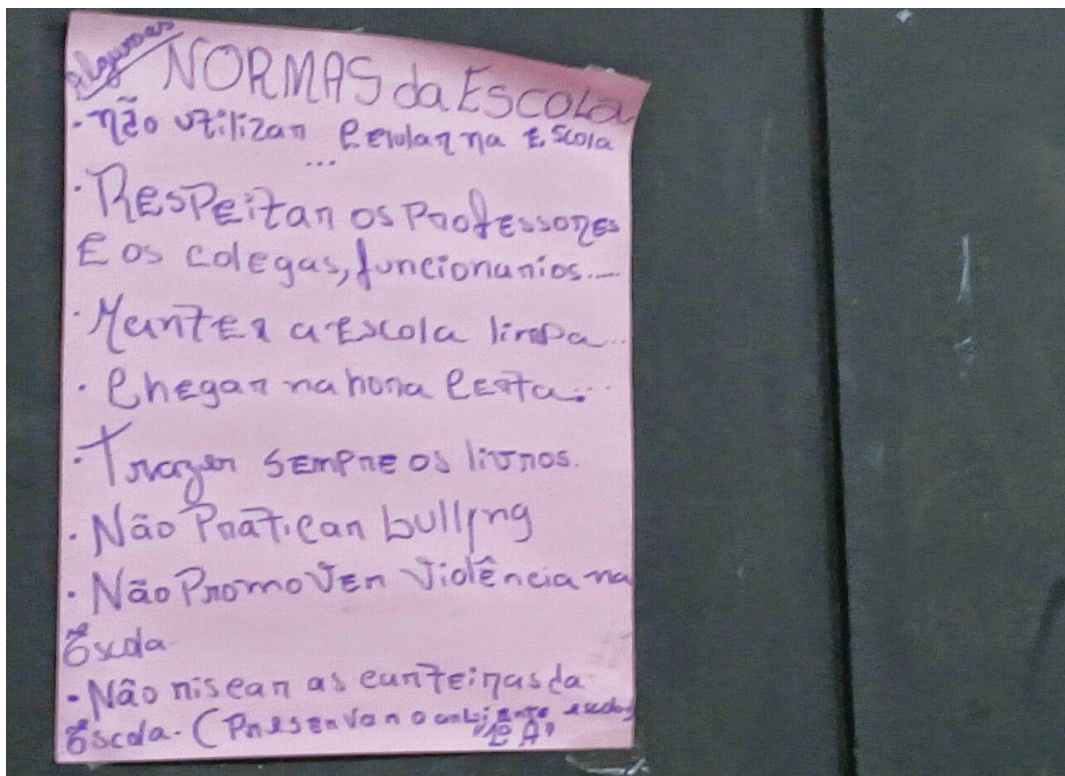 Algumas NORMAS da Escola
- não utilizar celular na Escola
...
· Respeitar os Professores
E os colegas, funcionarios...
· Manter a Escola limpa...
· Chegar na hora Certa...
· Trazer sempre os livros.
· Não Praticar bullyng
· Não Promover Violência na
Escola
- Não riscar as carteiras da
Escola. (Preservar o ambiente escolar
1º A,